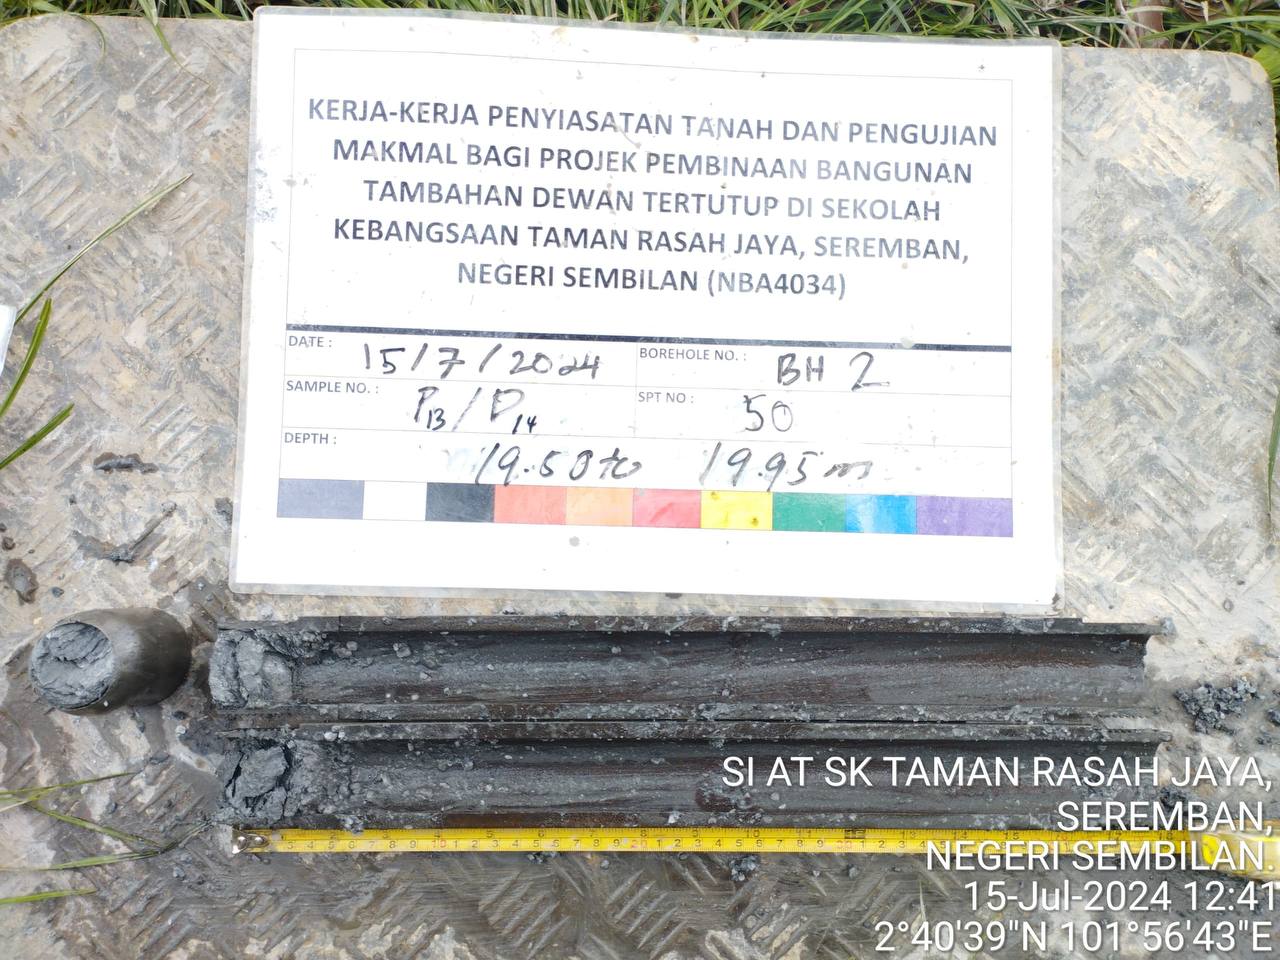 KERJA-KERJA PENYIASATAN TANAH DAN PENGUJIAN
MAKMAL BAGI PROJEK PEMBINAAN BANGUNAN
TAMBAHAN DEWAN TERTUTUP DI SEKOLAH
KEBANGSAAN TAMAN RASAH JAYA, SEREMBAN,
NEGERI SEMBILAN (NBA4034)
DATE : 15/7/2024 BOREHOLE NO. : BH 2
SAMPLE NO. : P13/D14 SPT NO : 50
DEPTH : 19.50 to 19.95 m
SI AT SK TAMAN RASAH JAYA,
SEREMBAN,
NEGERI SEMBILAN.
15-Jul-2024 12:41
2°40'39"N 101°56'43"E